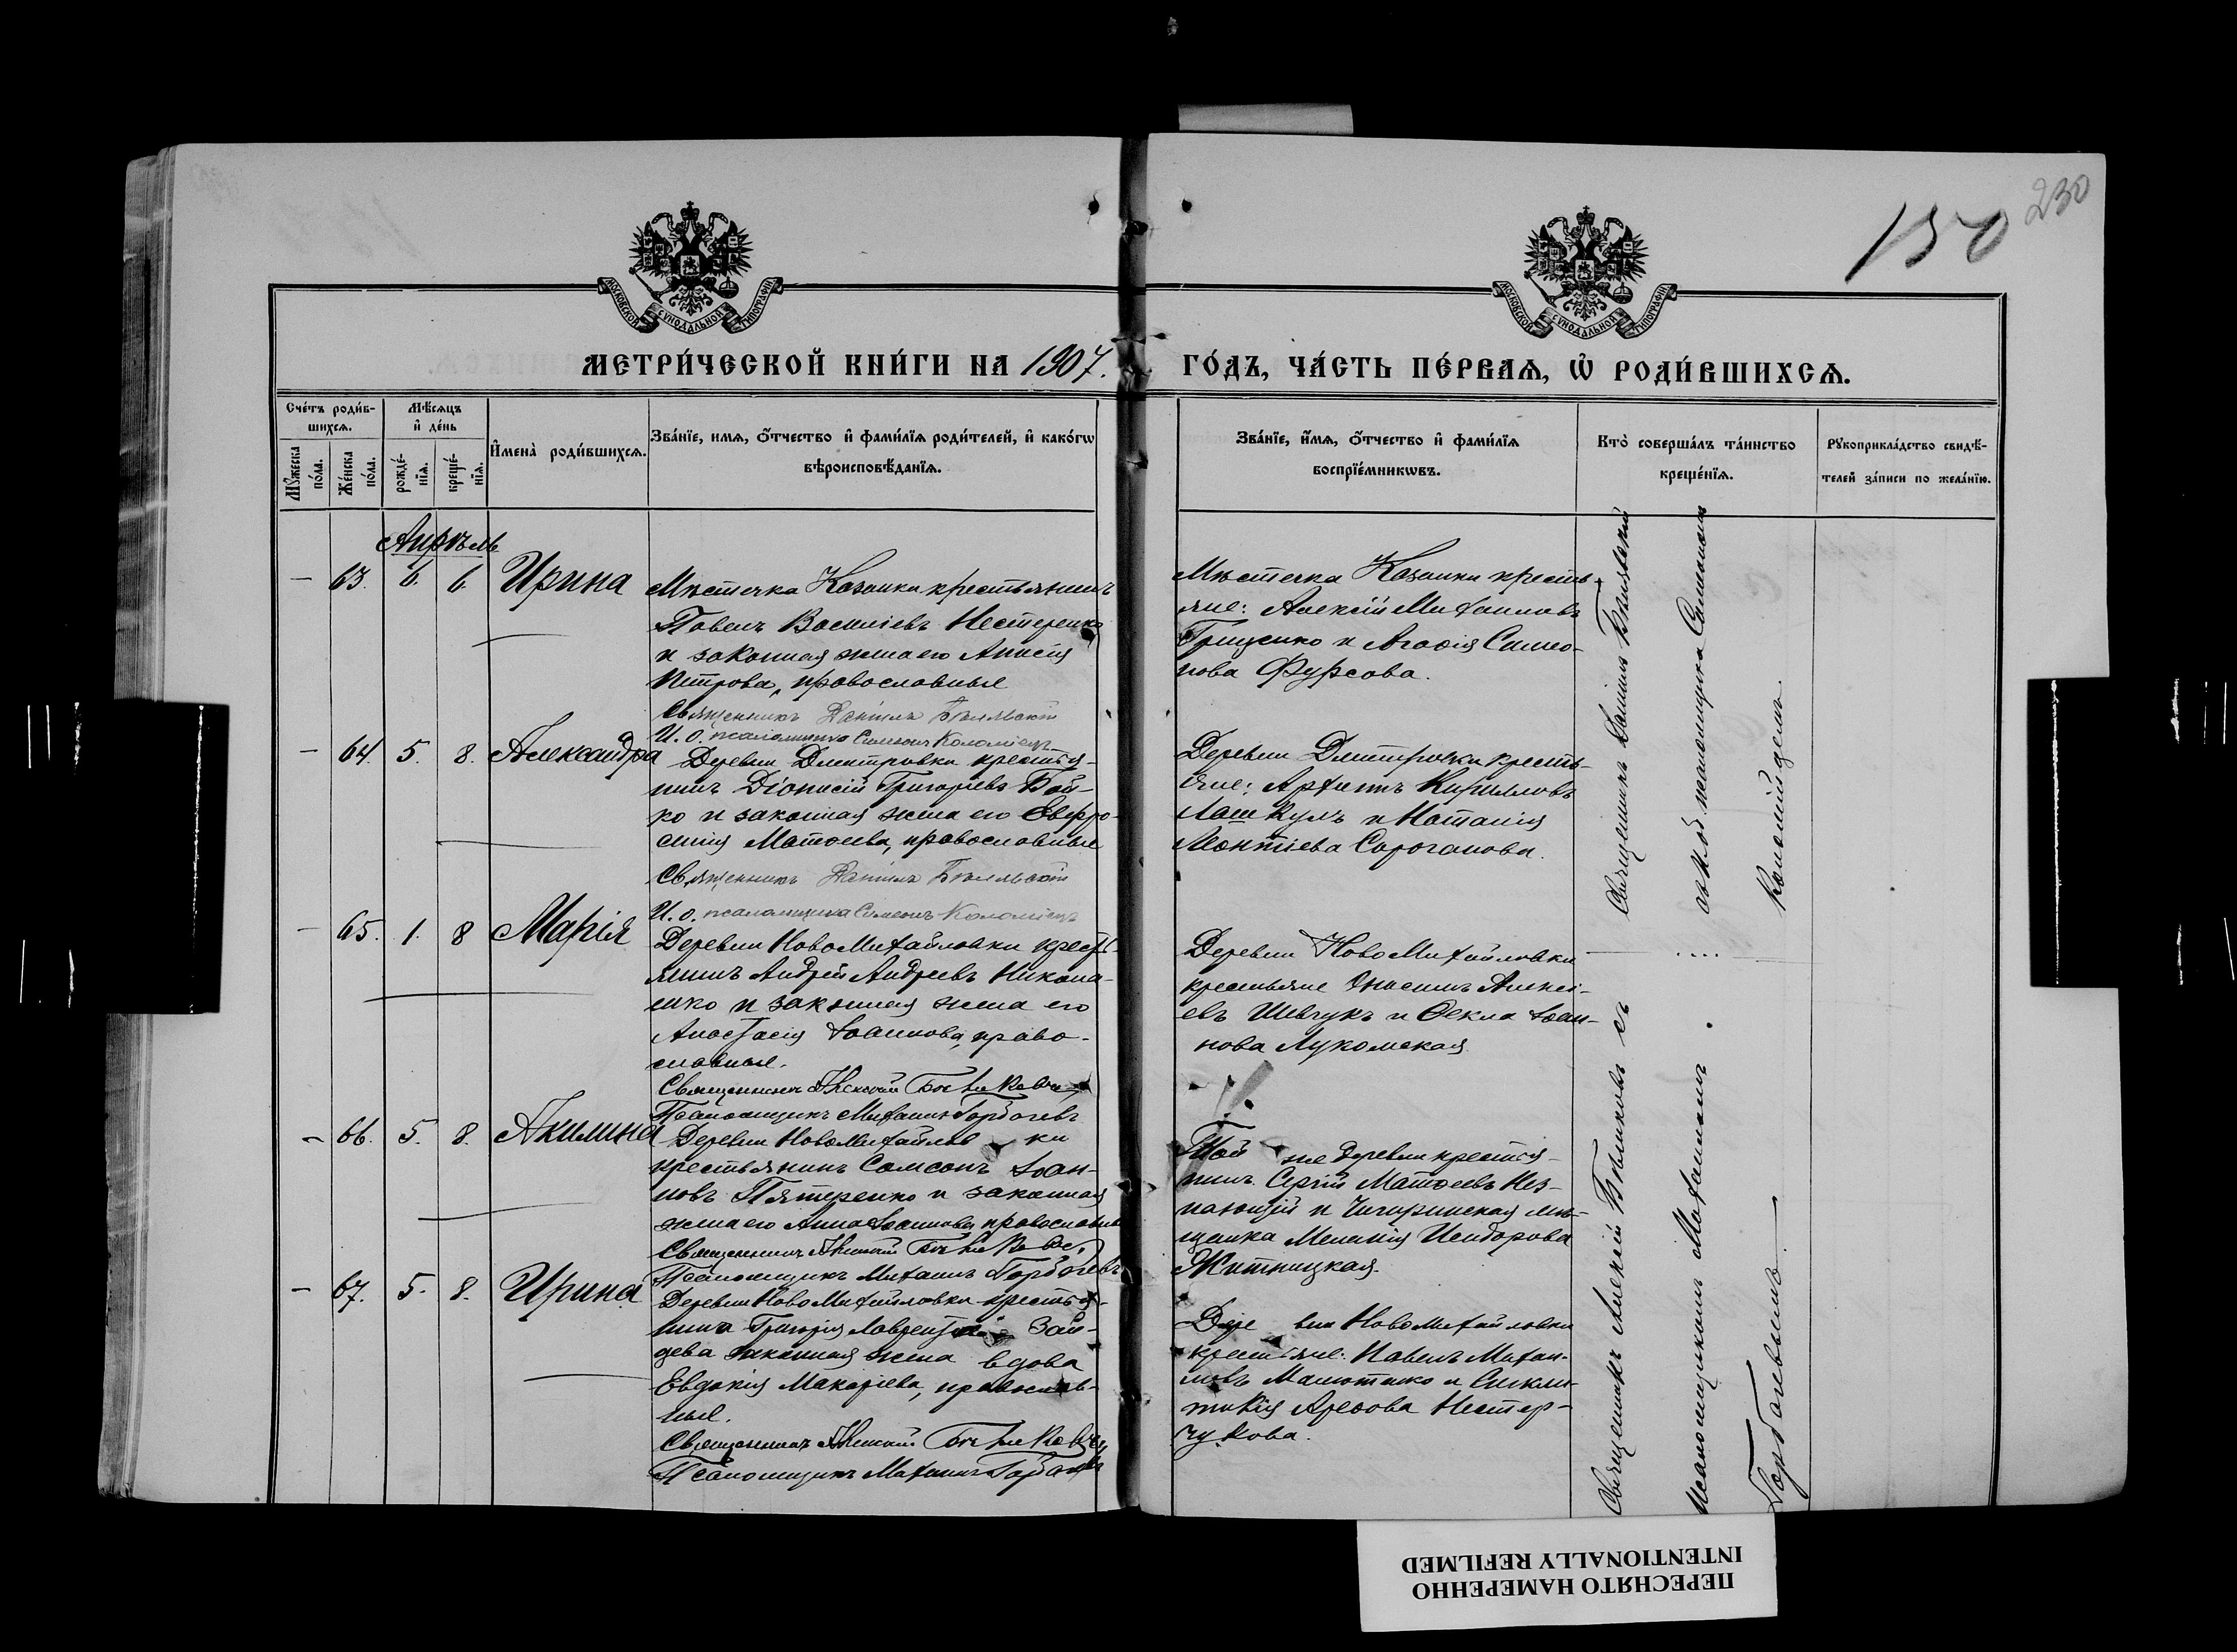 230
150
МОСКОВСКОЙ СѴНОДАЛЬНОЙ ТИПОГРАФІИ
МОСКОВСКОЙ СѴНОДАЛЬНОЙ ТИПОГРАФІИ
МЕТРИ́ЧЕСКОЙ КНИ́ГИ НА 1907.
ГО́ДЪ, ЧА́СТЬ ПЕ́РВАѦ, Ѡ҆ РОДИ́ВШИХСѦ.
Сче́тъ роди́в-
шихсѧ.
Мѣ́сѧцъ
и҆ де́нь
Мꙋ́жеска
по́ла.
Же́нска
по́ла.
рожде́-
нїѧ.
креще́-
нїѧ.
И҆мена̀ роди́вшихсѧ.
Зва́нїе, имѧ, ѻ҆́тчество и҆ фами́лїѧ роди́телей, и҆ како́гѡ
вѣроисповѣ́данїѧ.
Зва́нїе, и҆́мѧ, ѻ҆́тчество и҆ фами́лїѧ
воспрїе́мникѡвъ.
Кто̀ соверша́лъ та́инство
креще́нїѧ.
Рꙋкоприкла́дство свидѣ́-
телей за́писи по жела́нїю.
Апрѣль
— 63. 6. 6. Ирина
Мѣстечка Казанки крестьянинъ
Павелъ Василіевъ Нестеренко
и законная жена его Анисія
Петрова, православные
Священникъ Даніилъ Бѣлявскій
И. о. псаломщика Симеонъ Коломіецъ
Мѣстечка Казанки кресть-
яне: Алексій Михаиловъ
Гриценко и Агафія Симео-
нова Фурсова.
— 64. 5. 8. Александра
Деревни Дмитровки крестья-
нинъ Діонисій Григоріевъ Бой-
ко и законная жена его Евфро-
синія Матѳеева, православные
Священникъ Даніилъ Бѣлявскій
И. о. псаломщика Симеонъ Коломіецъ
Деревни Дмитровки кресть-
яне: Архипъ Кирилловъ
Лашкулъ и Наталія
Леонтіева Сороганова.
— 65. 1. 8 Марія
Деревни НовоМихайловки кресть
янинъ Андрей Андреевъ Никола-
енко и законная жена его
Анастасія Іоаннова, право-
славные.
Священникъ Алексій
Псаломщикъ Михаилъ Горбачевъ
Деревни НовоМихайловки
крестьяне Онисимъ Алексі-
евъ Шевчукъ и Ѳекла Іоан-
нова Лукомская
— 66. 5. 8. Акилина
Деревни НовоМихайлов ки
крестьянинъ Самсонъ Іоан-
новъ Пятеренко и законная
жена его Анна Іоаннова православные
Священникъ Алексій
Псаломщикъ Михаилъ Горбачевъ
Той же деревни крестья-
нинъ Сергій Матѳеевъ Нез-
нающій и Чигиринская мѣ-
щанка Меланія Исидорова
Житницкая.
— 67. 5. 8. Ирина
Деревни НовоМихайловки крестья-
нина Григорія Лаврентіева Зай-
цева законная жена вдова
Евдокія Макаріева, православ-
ные.
Священникъ Алексій
Псаломщикъ Михаилъ Горбачевъ
Дере вни НовоМихайловки
крестьяне: Павелъ Михаи-
ловъ Малютенко и Синкли-
тикія Ареѳова Нестер-
чукова.
Священникъ Даніилъ Бѣлявскій
съ и. об. псаломщика Симеономъ
Коломійцемъ.
Священникъ Алексій съ
псаломщикомъ Михаиломъ
Горбачевымъ.
ПЕРЕСНЯТО НАМЕРЕННО
INTENTIONALLY REFILMED